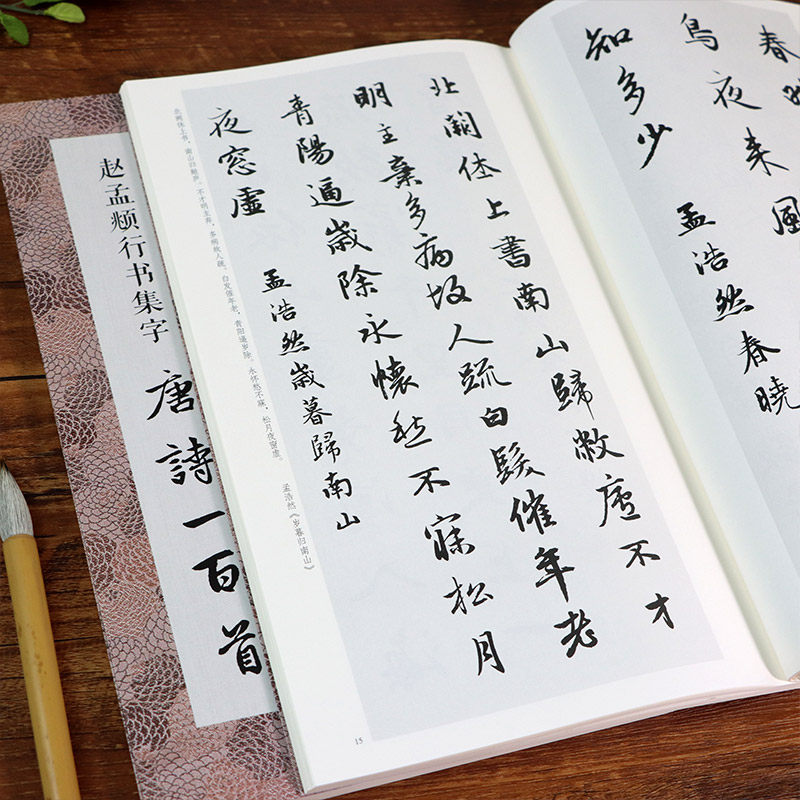 春
鳥夜来風
知多少
孟浩然春曉
北闕休上書南山歸敝廬不才
明主棄多病故人疏白髮催年老
青陽逼歲除永懷愁不寐松月
夜窓虛
孟浩然歲暮歸南山
北阙休上书，南山归敝庐。不才明主弃，多病故人疏。白发催年老，青阳逼岁除。永怀愁不寐，松月夜窗虚。
孟浩然《岁暮归南山》
15
赵孟頫行书集字
唐詩一百首